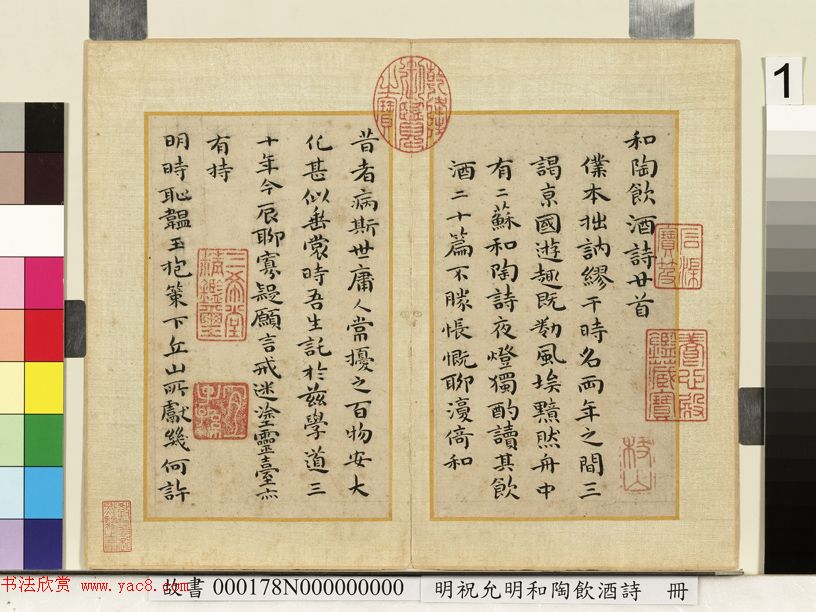 和陶飲酒詩廿首
僕本拙訥繆干時名兩年之間三
謁京國遊趣既勌風埃黯然舟中
有二蘇和陶詩夜燈獨酌讀其飲
酒二十篇不勝悵慨聊濅倚和
昔者病斯世庸人常擾之百物安大
化甚似垂裳時吾生託於茲學道三
十年今辰聊寡疑願言戒迷塗靈臺亦
有持
明時恥韞玉抱策下丘山所獻幾何許
乾隆御覽之寶
石渠寶笈
養心殿鑑藏寶
枝山
三希堂精鑑璽
宜子孫
1
书法欣赏 www.yac8.com
故書 000178N000000000
明祝允明和陶飲酒詩 冊